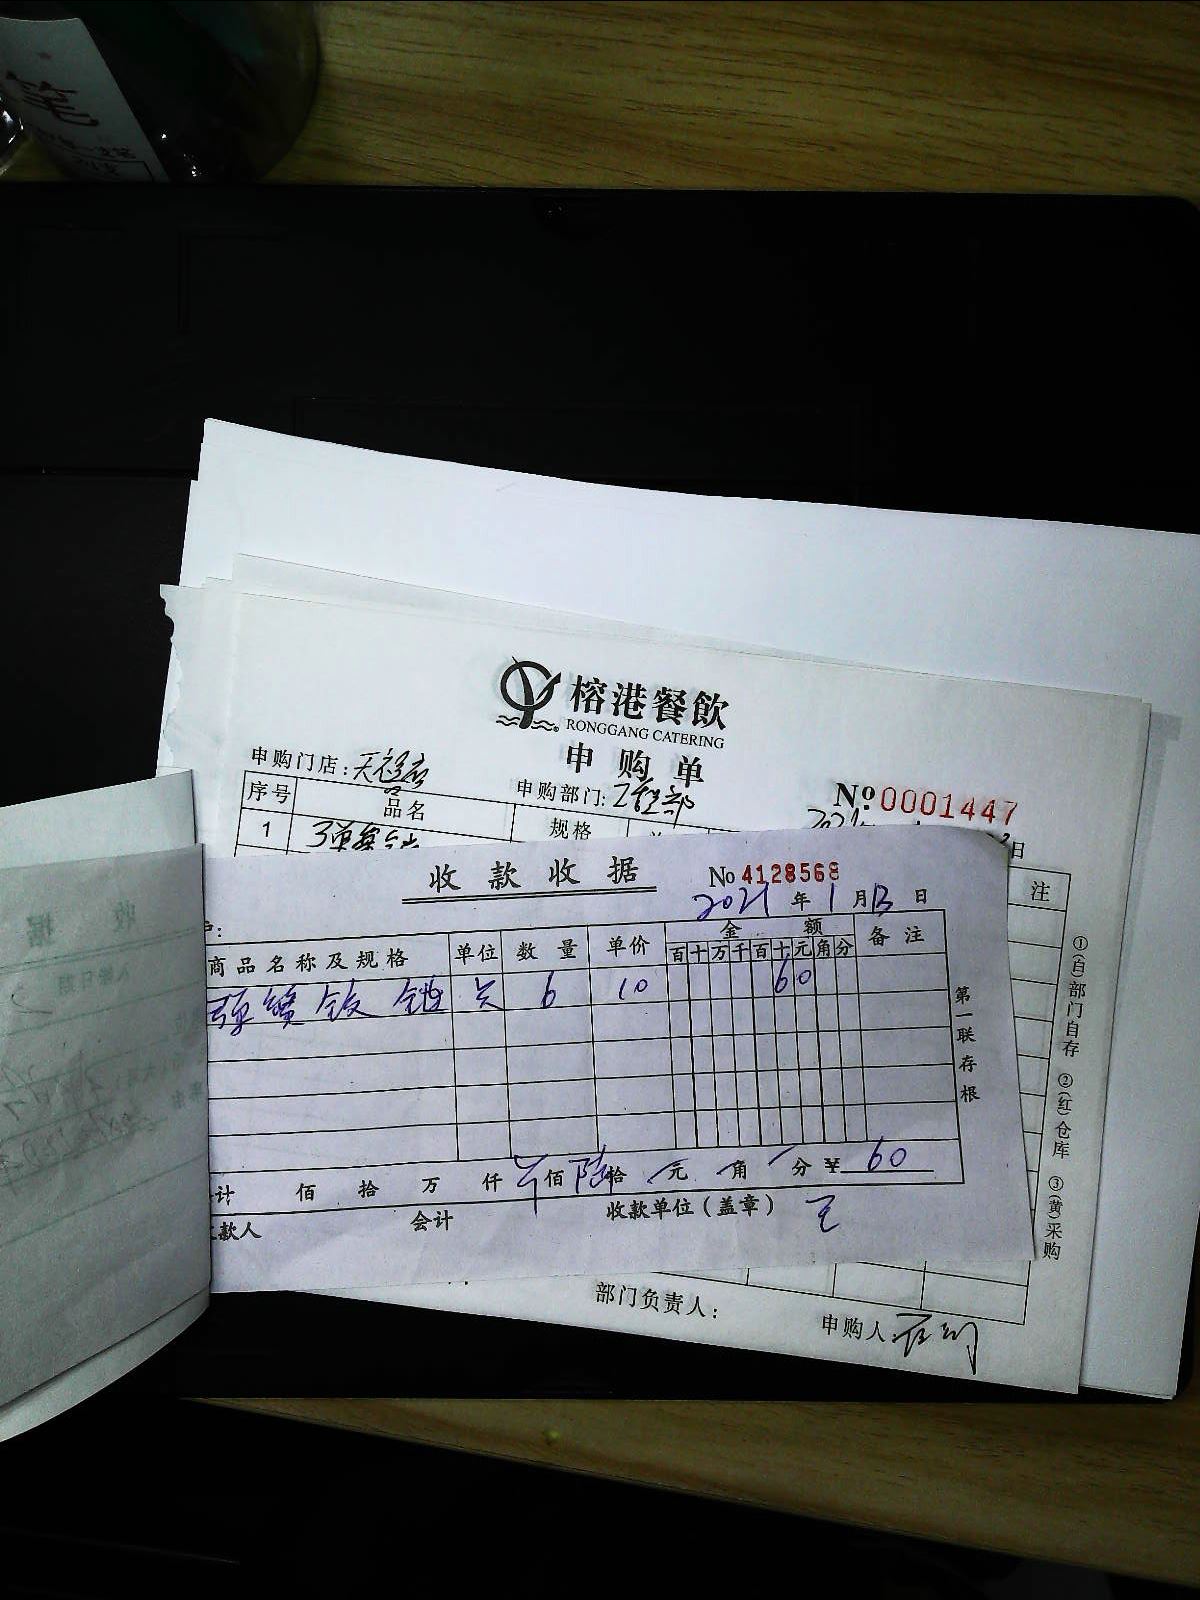 笔
榕港餐飲
RONGGANG CATERING
申购单
申购门店:天裙店
申购部门:工程部
№ 0001447
序号 品名 规格
1 弹簧合
日
注
收款收据
No 4128568
2021 年 1 月 13 日
商品名称及规格 单位 数量 单价 金额 备注
百 十 万 千 百 十 元 角 分
弹簧铰链 只 6 10 60
第一联存根
计 佰 拾 万 仟 佰 陆拾 元 角 分 ¥ 60
款人 会计 收款单位(盖章)
①(白)部门自存 ②(红)仓库 ③(黄)采购
部门负责人:
申购人
收 据